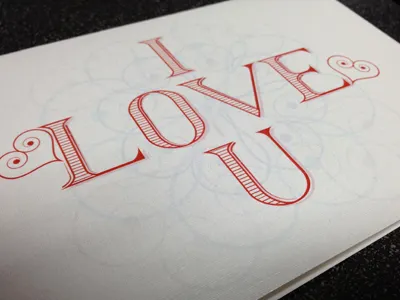 I
LOVE
U